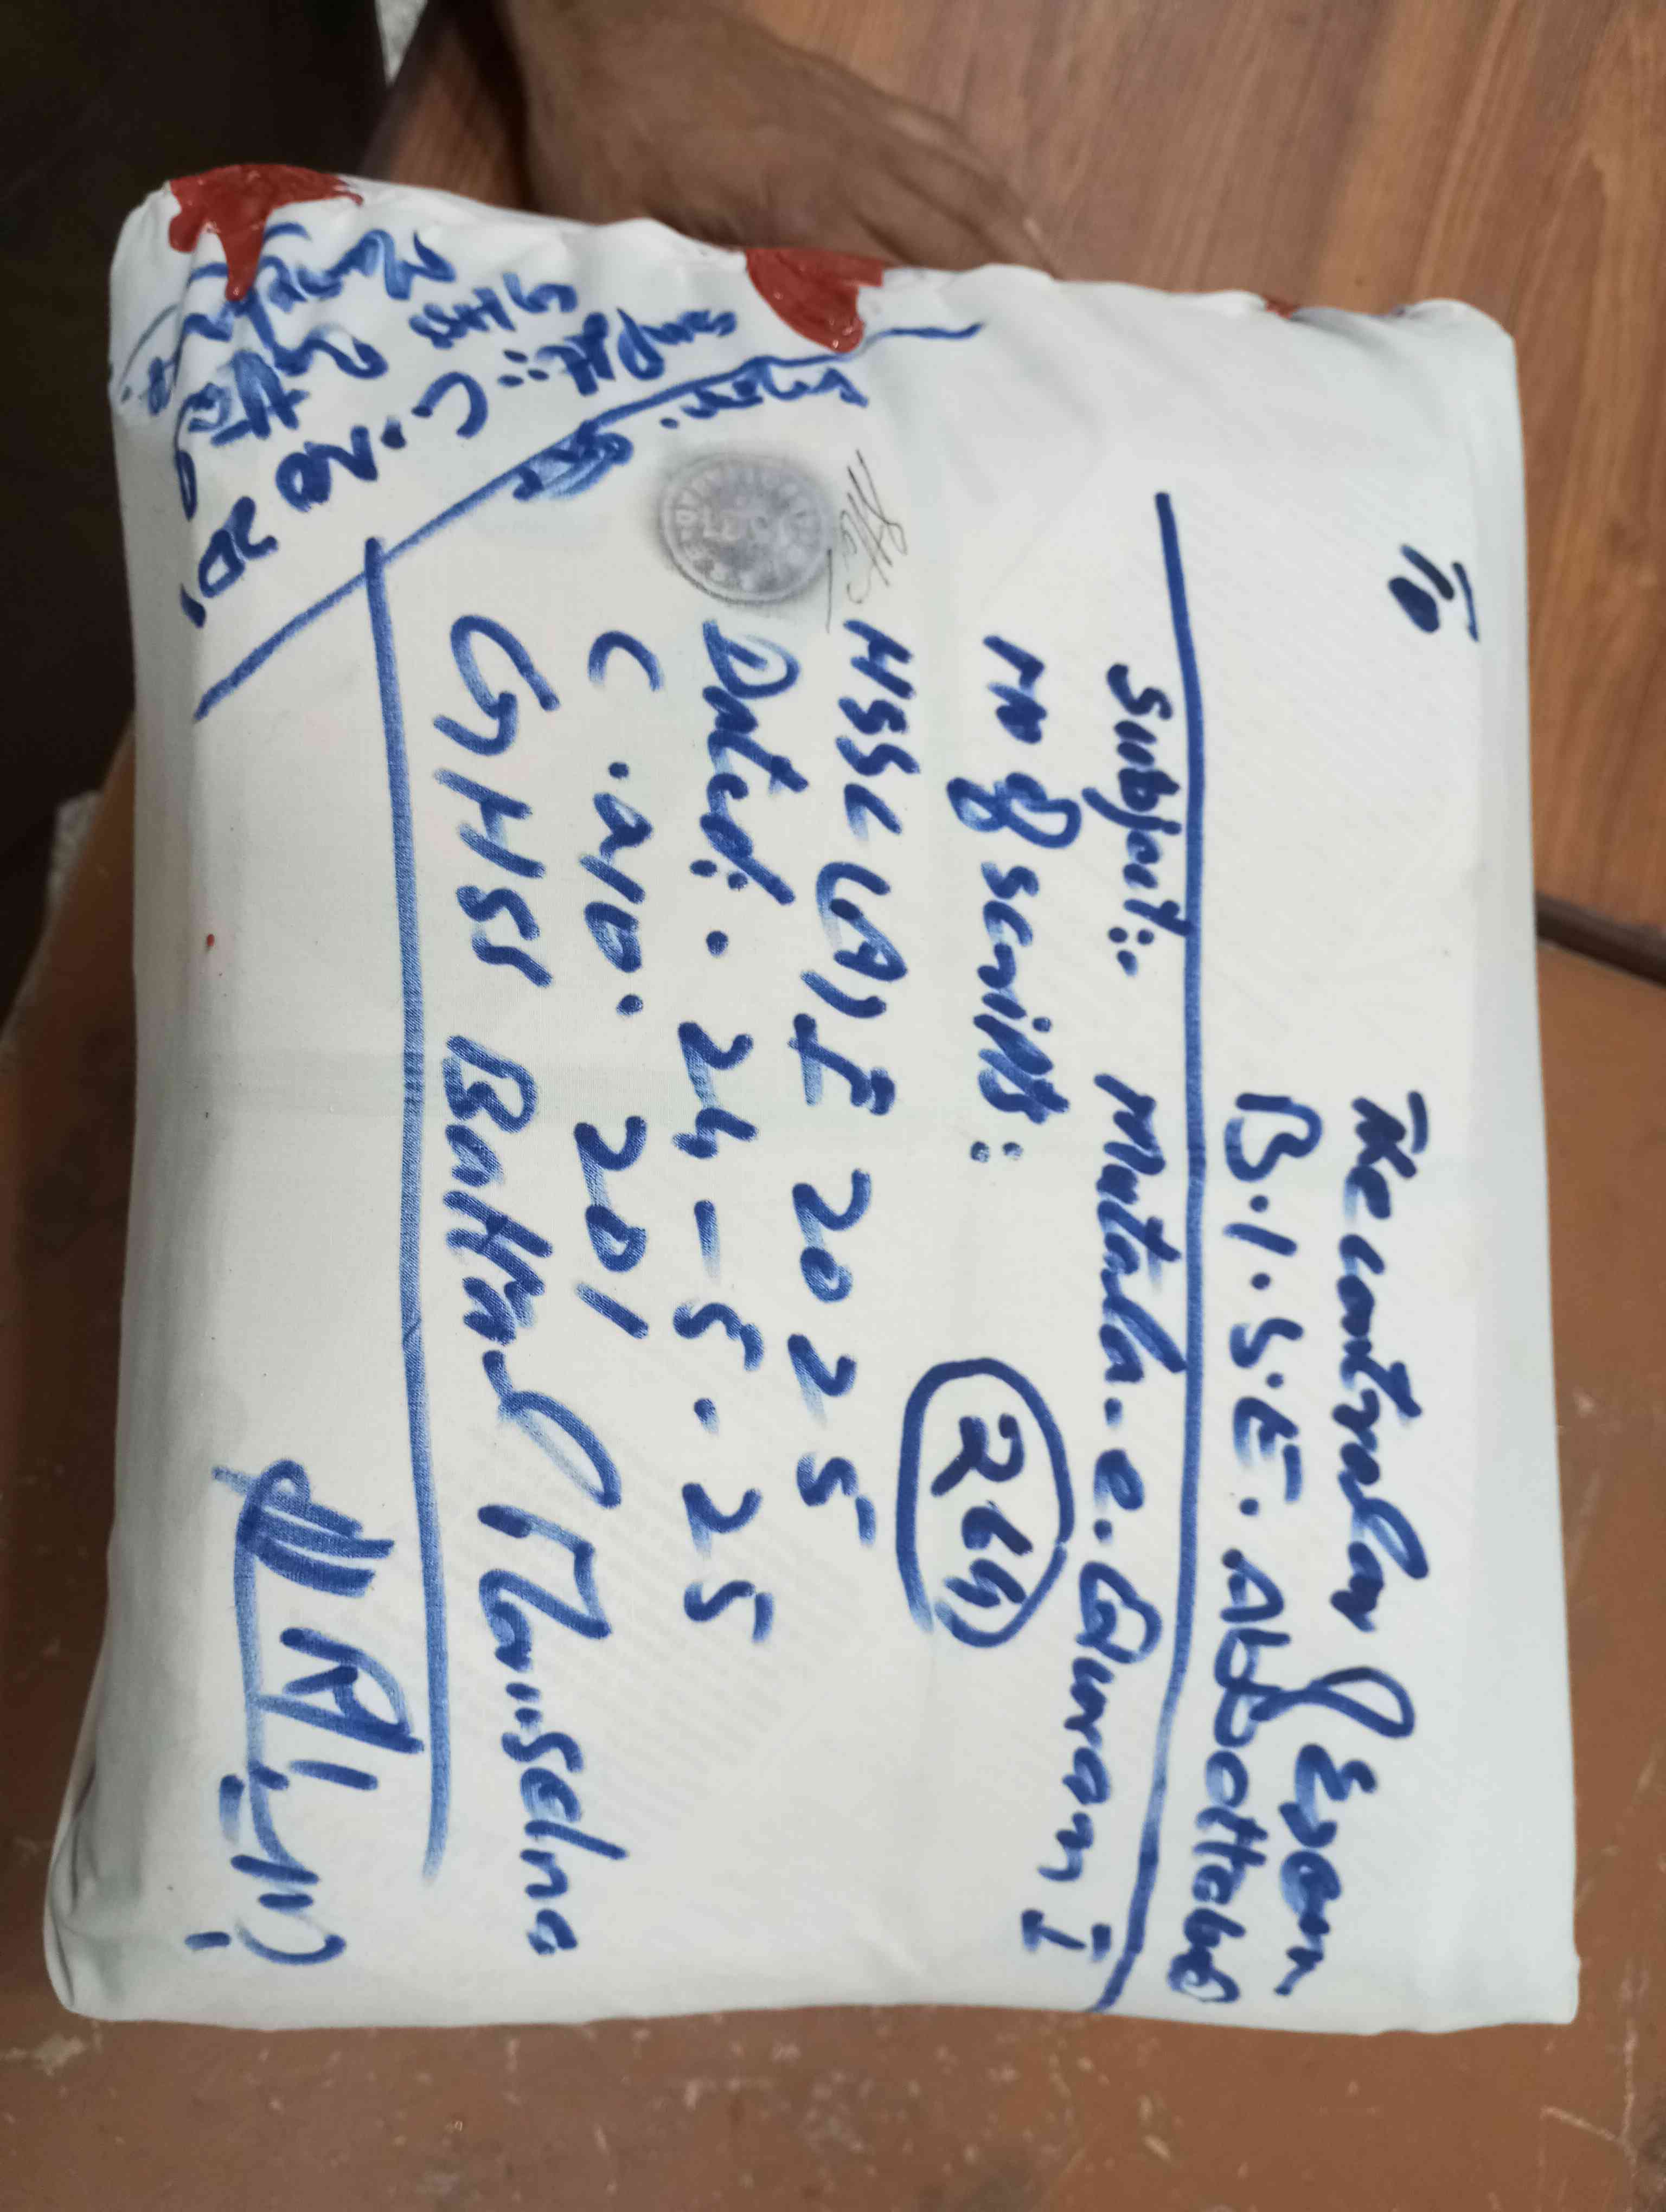 To
The controler of Exam
B.I.S.E. Abbottabad
Subject:. Mutala.e.Quran I
No of scripts: 264
HSSC (A) I 2025
Dated: . 24-5.25
C.No. 201
GHSS Battal Mansehra
C.No 201
GHSS Battal